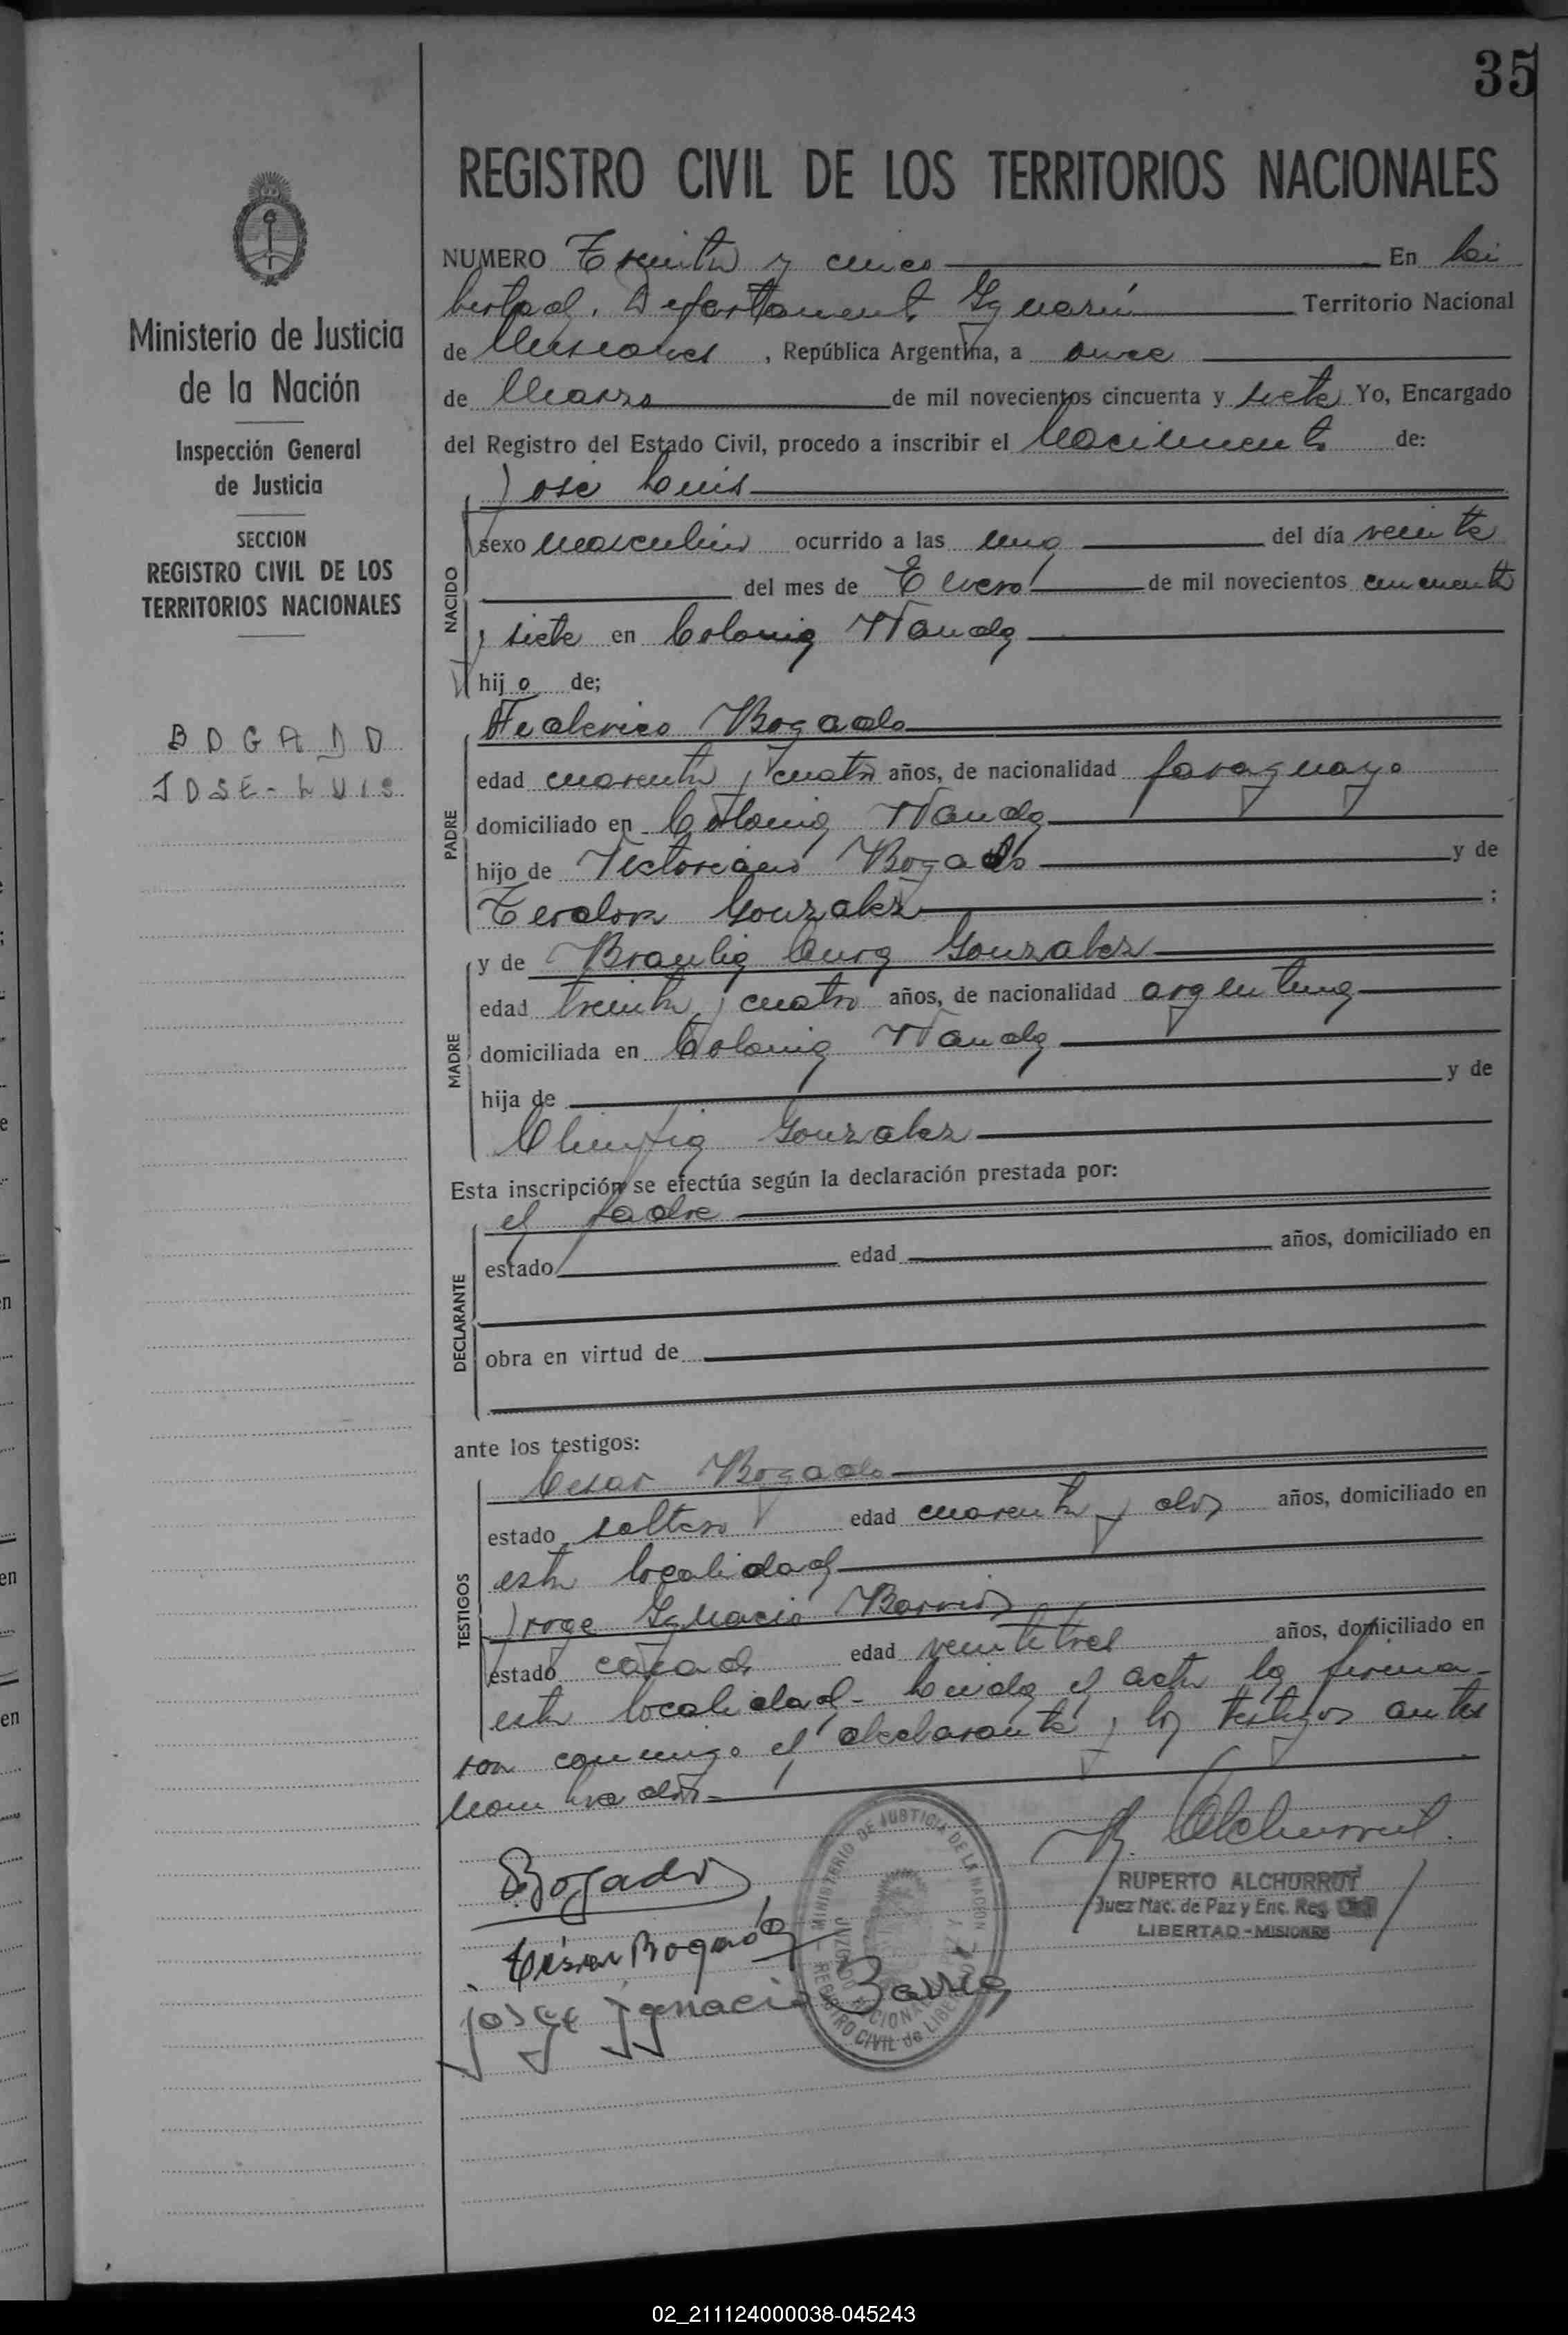 35
REGISTRO CIVIL DE LOS TERRITORIOS NACIONALES
Ministerio de Justicia
de la Nación
Inspección General
de Justicia
SECCION
REGISTRO CIVIL DE LOS
TERRITORIOS NACIONALES
BOGADO
JOSE-LUIS
NUMERO Treinta y cinco En Li
bertad, Departamento Iguazú Territorio Nacional
de Misiones, República Argentina, a once
de Marzo de mil novecientos cincuenta y siete Yo, Encargado
del Registro del Estado Civil, procedo a inscribir el Nacimiento de:
NACIDO
José Luis
sexo masculino ocurrido a las una del día veinte
del mes de Enero de mil novecientos cincuenta
y siete en Colonia Wanda
hijo de;
PADRE
Federico Bogado
edad cuarenta y cuatro años, de nacionalidad paraguayo
domiciliado en Colonia Wanda
hijo de Victoriano Bogado y de
Teodora Gonzalez;
MADRE
y de Braulia Gonzalez
edad treinta y cuatro años, de nacionalidad argentina
domiciliada en Colonia Wanda
hija de y de
Olimpia Gonzalez
Esta inscripción se efectúa según la declaración prestada por:
DECLARANTE
el padre
estado edad años, domiciliado en
obra en virtud de
ante los testigos:
TESTIGOS
Cesar Bogado
estado soltero edad cuarenta y dos años, domiciliado en
esta localidad
Jorge Ignacio Barrios
estado casado edad veintitres años, domiciliado en
esta localidad- Leida el acta la firma-
ron conmigo el declarante y los testigos antes
nombrados-
Bogado
R. Alchurrut
RUPERTO ALCHURRUT
Juez Nac. de Paz y Enc. Reg.
LIBERTAD - MISIONES
César Bogado
jorge ignacio Barrios
MINISTERIO DE JUSTICIA DE LA NACION
REGISTRO CIVIL de LIBERTAD
02_211124000038-045243